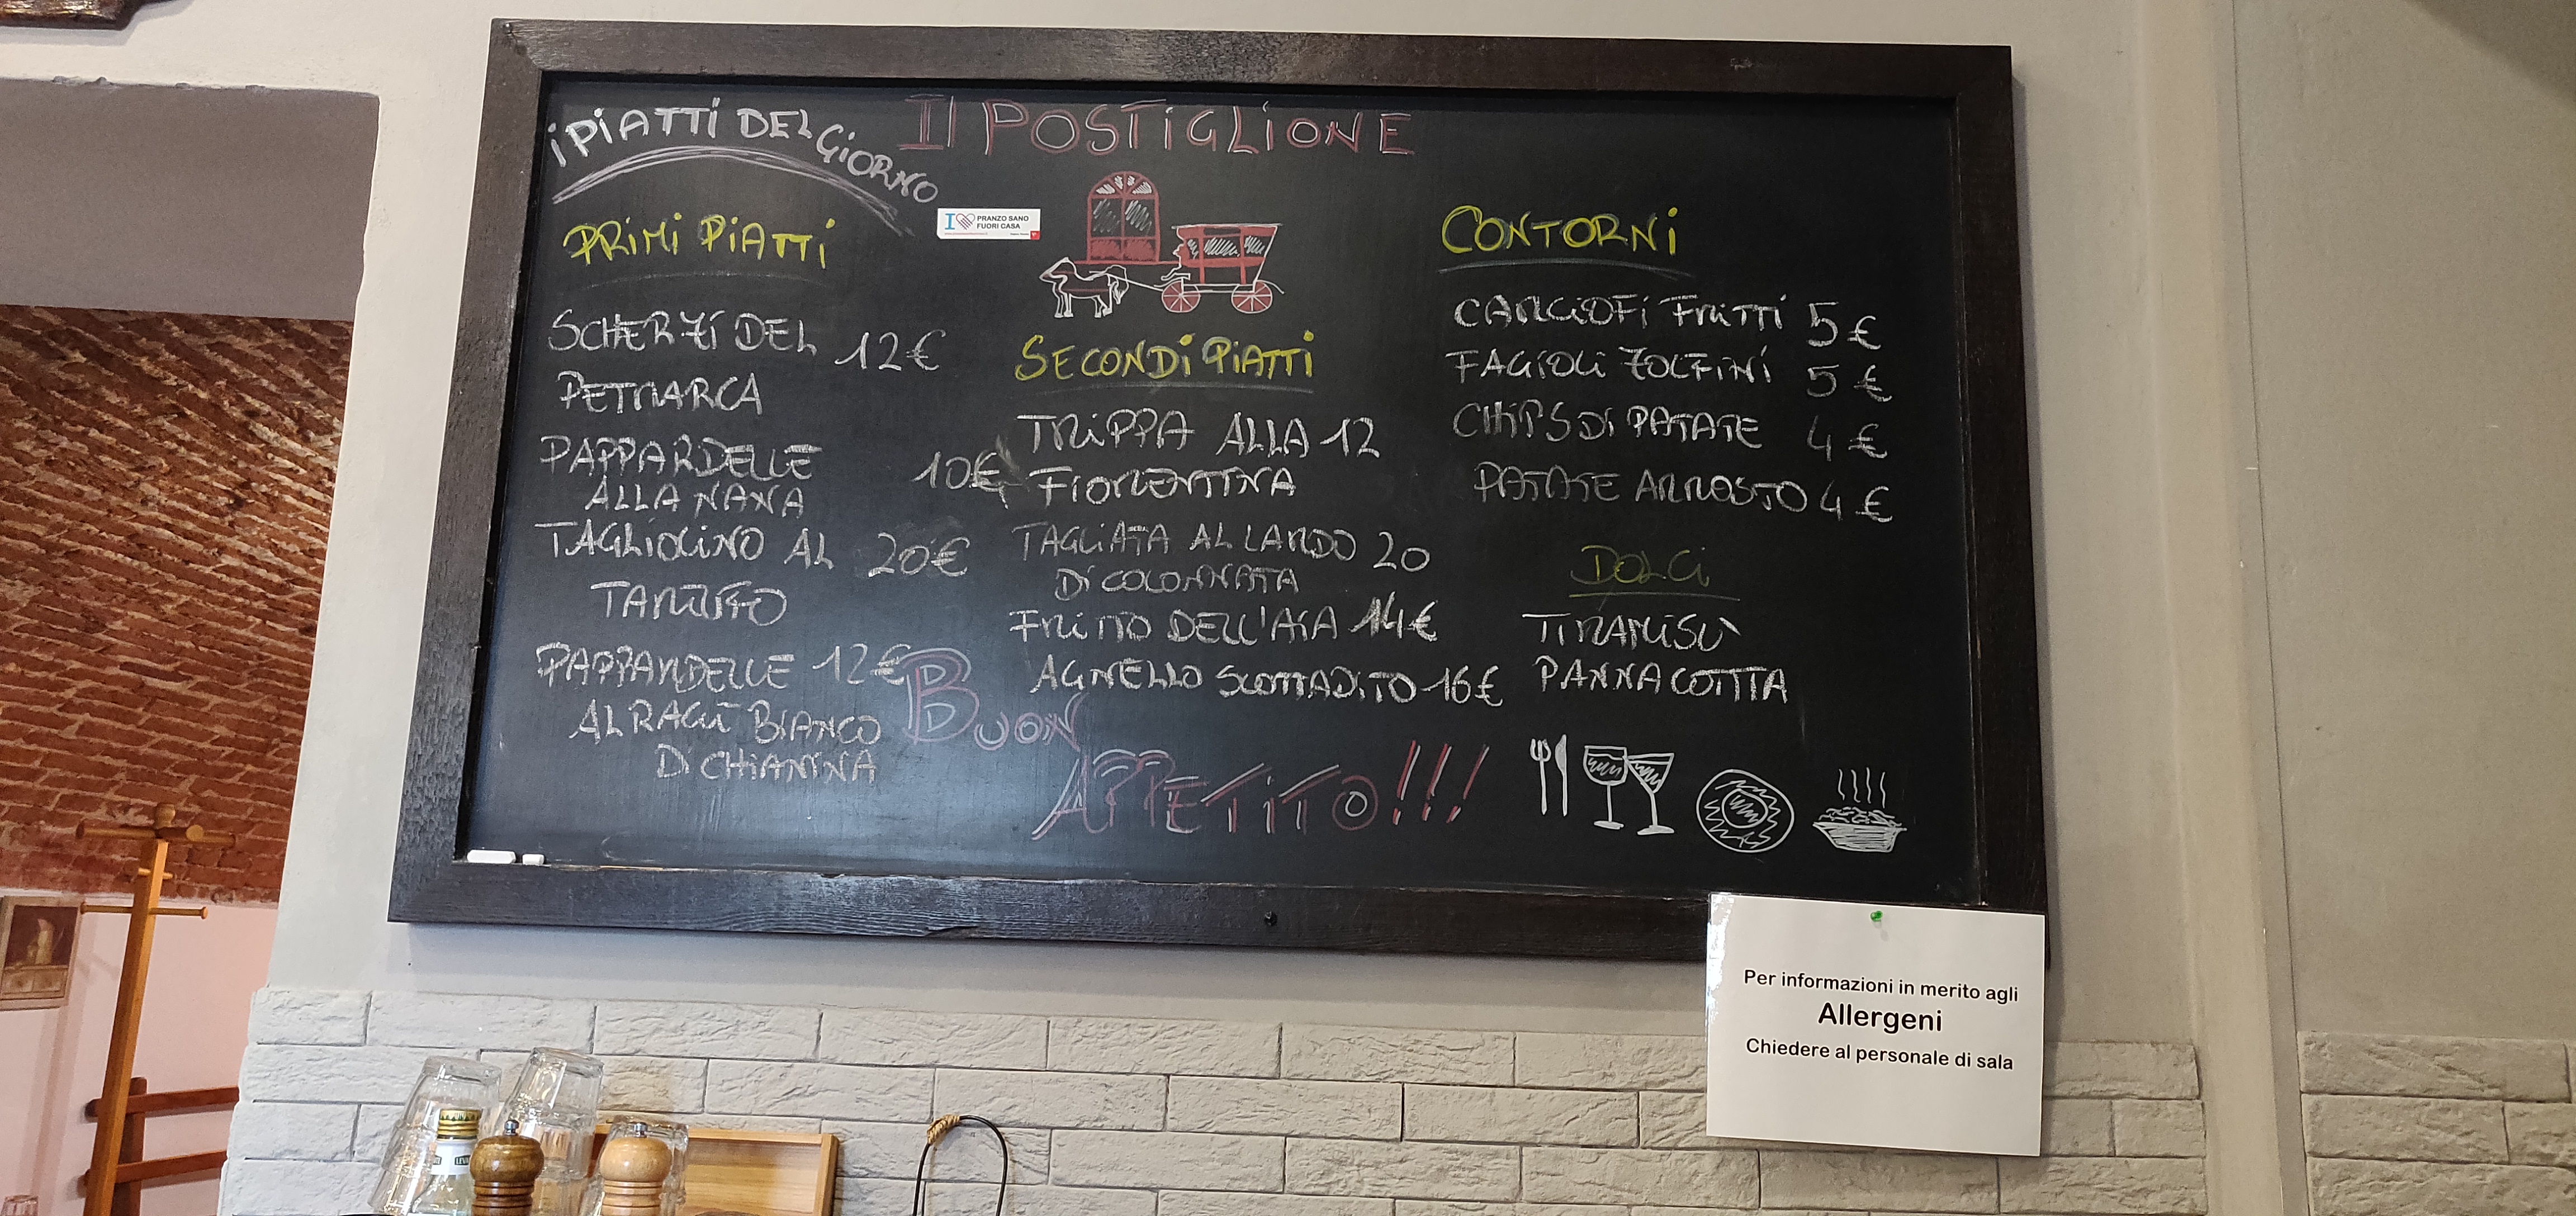 I PIATTI DEL GIORNO
Il POSTIGLIONE
I PRANZO SANO
FUORI CASA
PRIMI PIATTI
SCHERZI DEL 12€
PETRARCA
PAPPARDELLE 10€
ALLA NANA
TAGLIOLINO AL 20€
TARTUFO
PAPPARDELLE 12€
AL RAGÙ BIANCO
DI CHIANINA
SECONDI PIATTI
TRIPPA ALLA 12
FIORENTINA
TAGLIATA AL LARDO 20
DI COLONNATA
FRITTO DELL'AIA 14€
AGNELLO SCOTTADITO 16€
CONTORNI
CARCIOFI FRITTI 5€
FAGIOLI ZOLFINI 5€
CHIPS DI PATATE 4€
PATATE ARROSTO 4€
DOLCI
TIRAMISÙ
PANNA COTTA
BUON
APPETITO!!!
Per informazioni in merito agli
Allergeni
Chiedere al personale di sala